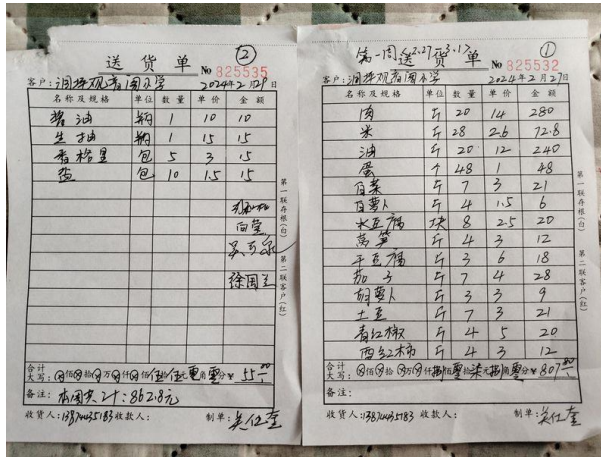 送货单 ②
No 825535
2024年2月27日
名称及规格 单位 数量 单价 金额
酱油 瓶 1 10 10
生抽 瓶 1 15 15
香格里 包 5 3 15
盐 包 10 1.5 15
徐国兰
第一联存根(白) 第二联客户(红)
合计大写: ⊗佰⊗拾⊗万⊗仟⊗佰伍拾伍元零角零分 ¥ 55.00
备注: 本周共计:862.8元
收货人:13874435183 收款人: 制单:吴仕奎
第一周 2.27-3.17
送货单 ①
No 825532
2024年2月27日
名称及规格 单位 数量 单价 金额
肉 斤 20 14 280
米 斤 28 2.6 72.8
油 斤 20 12 240
蛋 个 48 1 48
白菜 斤 7 3 21
白萝卜 斤 4 1.5 6
水豆腐 块 8 2.5 20
莴笋 斤 4 3 12
干豆腐 斤 3 6 18
茄子 斤 7 4 28
胡萝卜 斤 3 3 9
土豆 斤 7 3 21
青红椒 斤 4 5 20
西红柿 斤 4 3 12
第一联存根(白) 第二联客户(红)
合计大写: ⊗佰⊗拾⊗万⊗仟捌佰零拾柒元捌角零分 ¥ 807.80
备注:
收货人:13874435183 收款人: 制单:吴仕奎